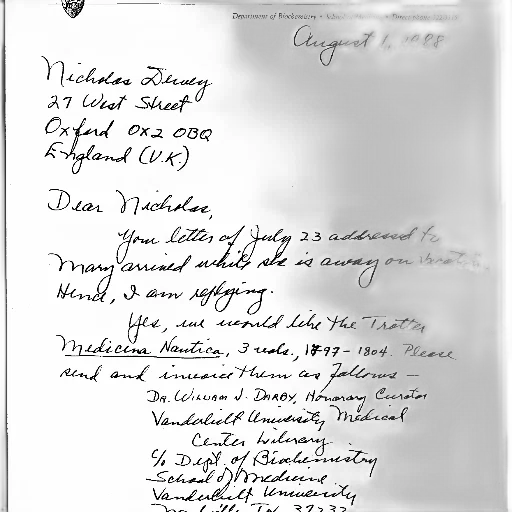 Department of Biochemistry • School of
August 1, 1988
Nicholas Dewey
27 West Street
Oxford OX2 0BQ
England (U.K.)
Dear Nicholas,
Your letter of July 23 addressed to
Mary arrived while she is away on
Hence, I am replying.
Yes, we would like the Trotter
Medicina Nautica, 3 vols., 1797-1804. Please
send and invoice them as follows —
Dr. William J. Darby, Honorary Curator
Vanderbilt University Medical
Center Library
c/o Dept. of Biochemistry
School of Medicine
Vanderbilt University
Nashville, Tn. 37232